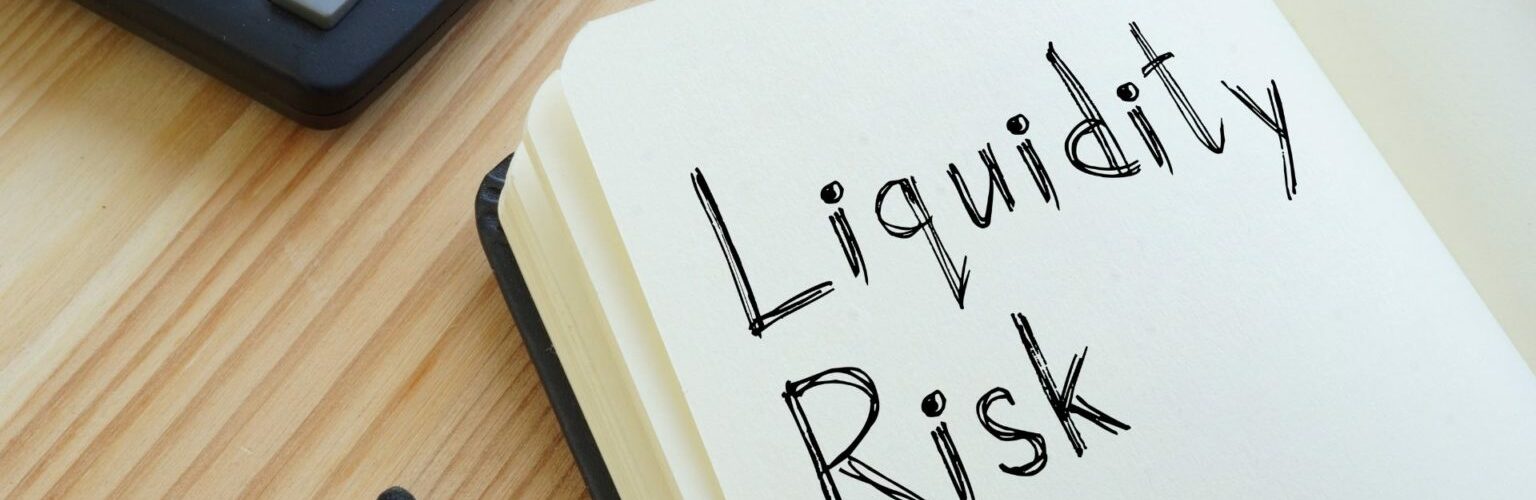 Liquidity
Risk